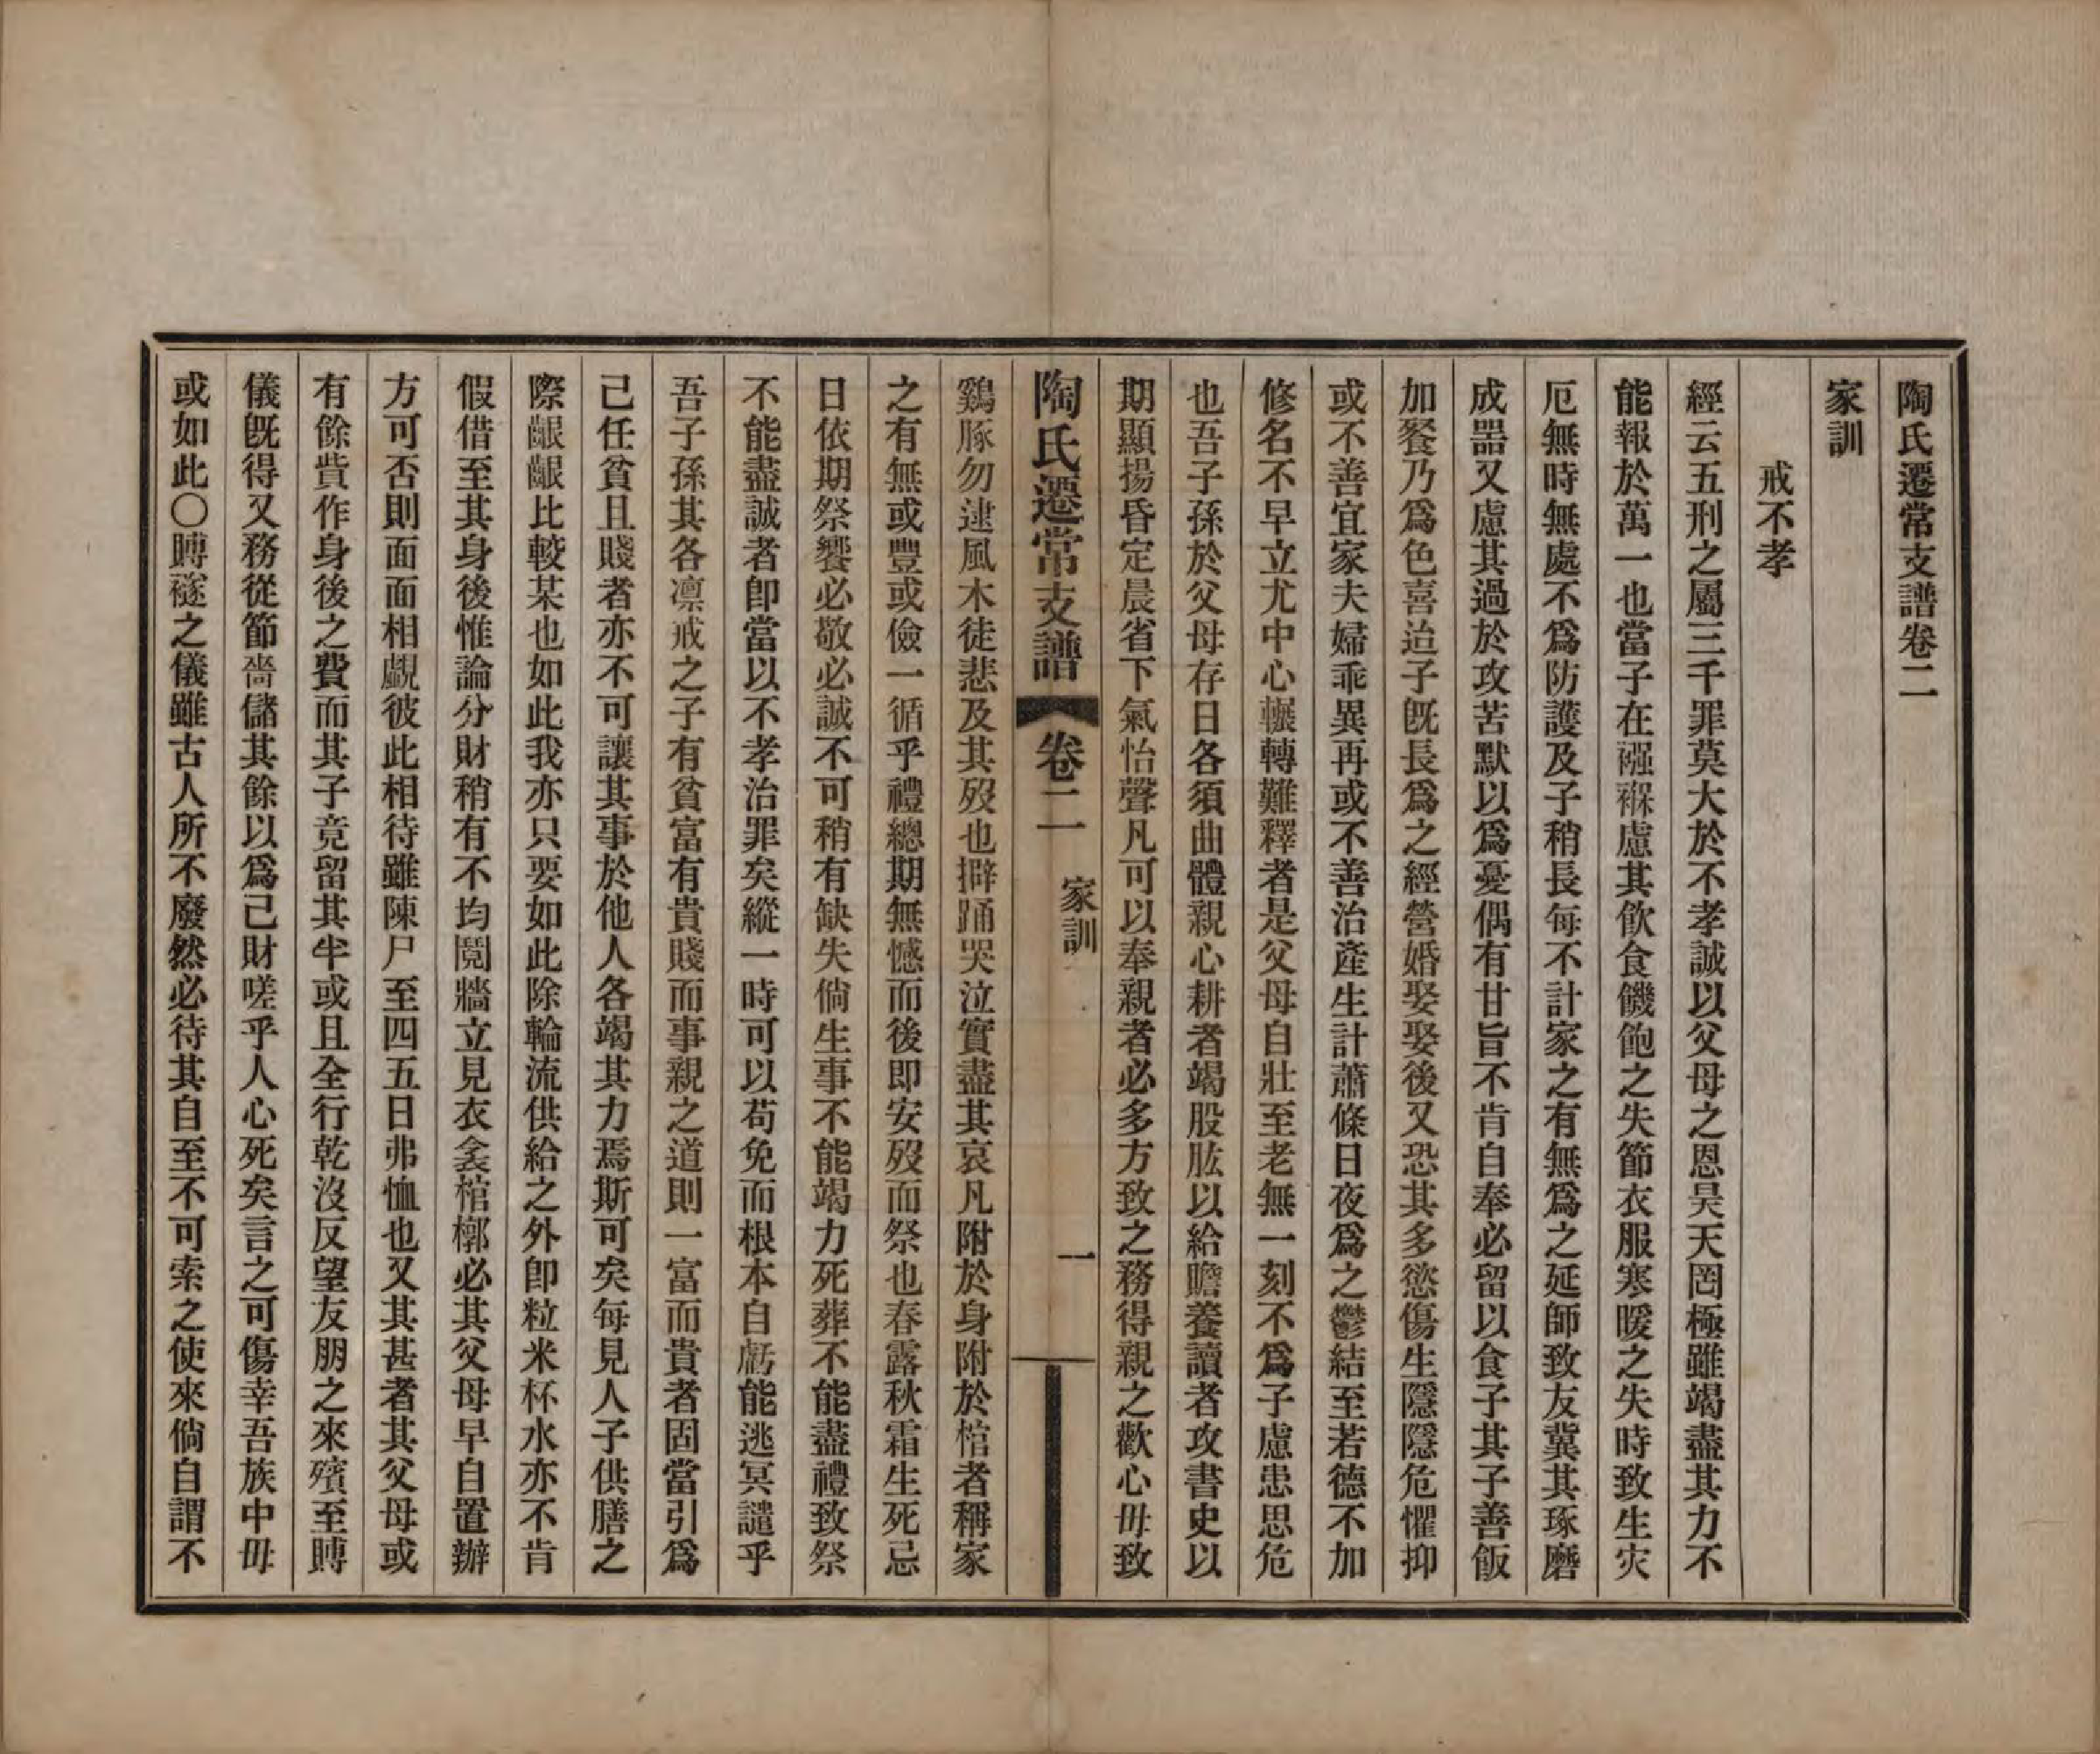 陶氏遷常支譜卷二
家訓
戒不孝
經云五刑之屬三千罪莫大於不孝誠以父母之恩昊天罔極雖竭盡其力不
能報於萬一也當子在襁褓慮其飮食饑飽之失節衣服寒暖之失時致生灾
厄無時無處不爲防護及子稍長每不計家之有無爲之延師致友冀其琢磨
成噐又慮其過於攻苦默以爲憂偶有甘旨不肯自奉必留以食子其子善飯
加餐乃爲色喜迨子旣長爲之經營婚娶娶後又恐其多慾傷生隱隱危懼抑
或不善宜家夫婦乖異再或不善治產生計蕭條日夜爲之鬱結至若德不加
修名不早立尤中心輾轉難釋者是父母自壯至老無一刻不爲子慮患思危
也吾子孫於父母存日各須曲體親心耕者竭股肱以給贍養讀者攻書史以
期顯揚昏定晨省下氣怡聲凡可以奉親者必多方致之務得親之歡心毋致
陶氏遷常支譜 卷二 家訓 一
鷄豚勿逮風木徒悲及其歿也擗踊哭泣實盡其哀凡附於身附於棺者稱家
之有無或豐或儉一循乎禮總期無憾而後即安歿而祭也春露秋霜生死忌
日依期祭饗必敬必誠不可稍有缺失倘生事不能竭力死葬不能盡禮致祭
不能盡誠者卽當以不孝治罪矣縱一時可以苟免而根本自虧能逃冥譴乎
吾子孫其各凛戒之子有貧富有貴賤而事親之道則一富而貴者固當引爲
己任貧且賤者亦不可讓其事於他人各竭其力焉斯可矣每見人子供膳之
際齦齦比較某也如此我亦只要如此除輪流供給之外卽粒米杯水亦不肯
假借至其身後惟論分財稍有不均鬩牆立見衣衾棺槨必其父母早自置辦
方可否則面面相覷彼此相待雖陳尸至四五日弗恤也又其甚者其父母或
有餘貲作身後之費而其子竟留其半或且全行乾沒反望友朋之來殯至賻
儀旣得又務從節嗇儲其餘以爲己財嗟乎人心死矣言之可傷幸吾族中毋
或如此〇賻襚之儀雖古人所不廢然必待其自至不可索之使來倘自謂不